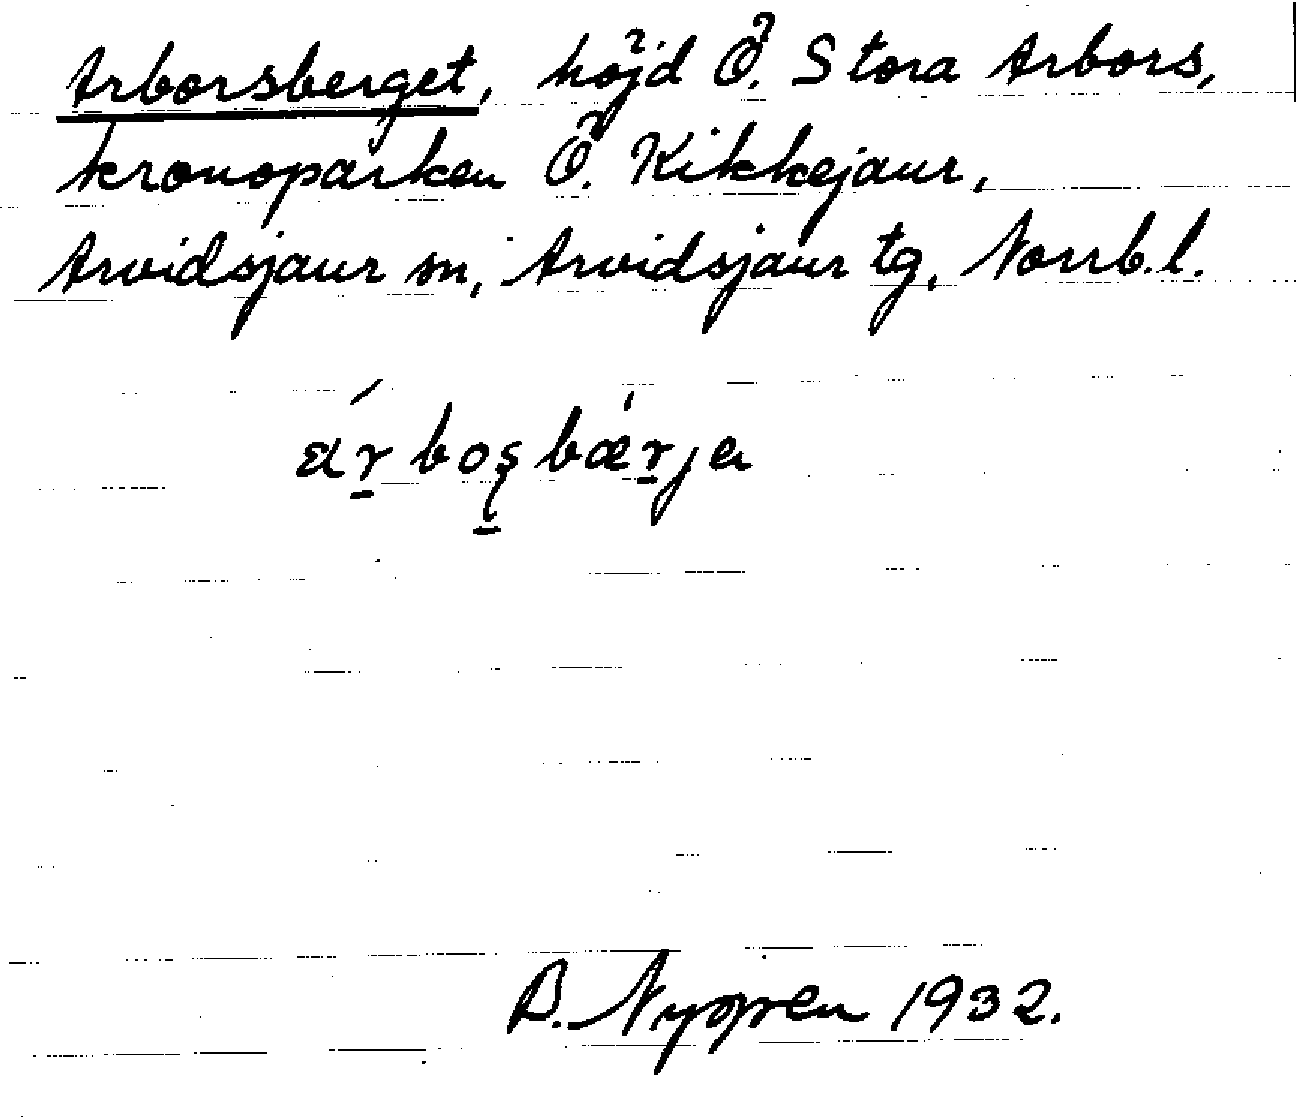 Arborsberget, höjd Ö. Stora Arbors,
kronoparken Ö. Kikkejaur,
Arvidsjaur sn, Arvidsjaur tg, Norrb.l.
árbos̨bǽrja
B. Nygren 1932.